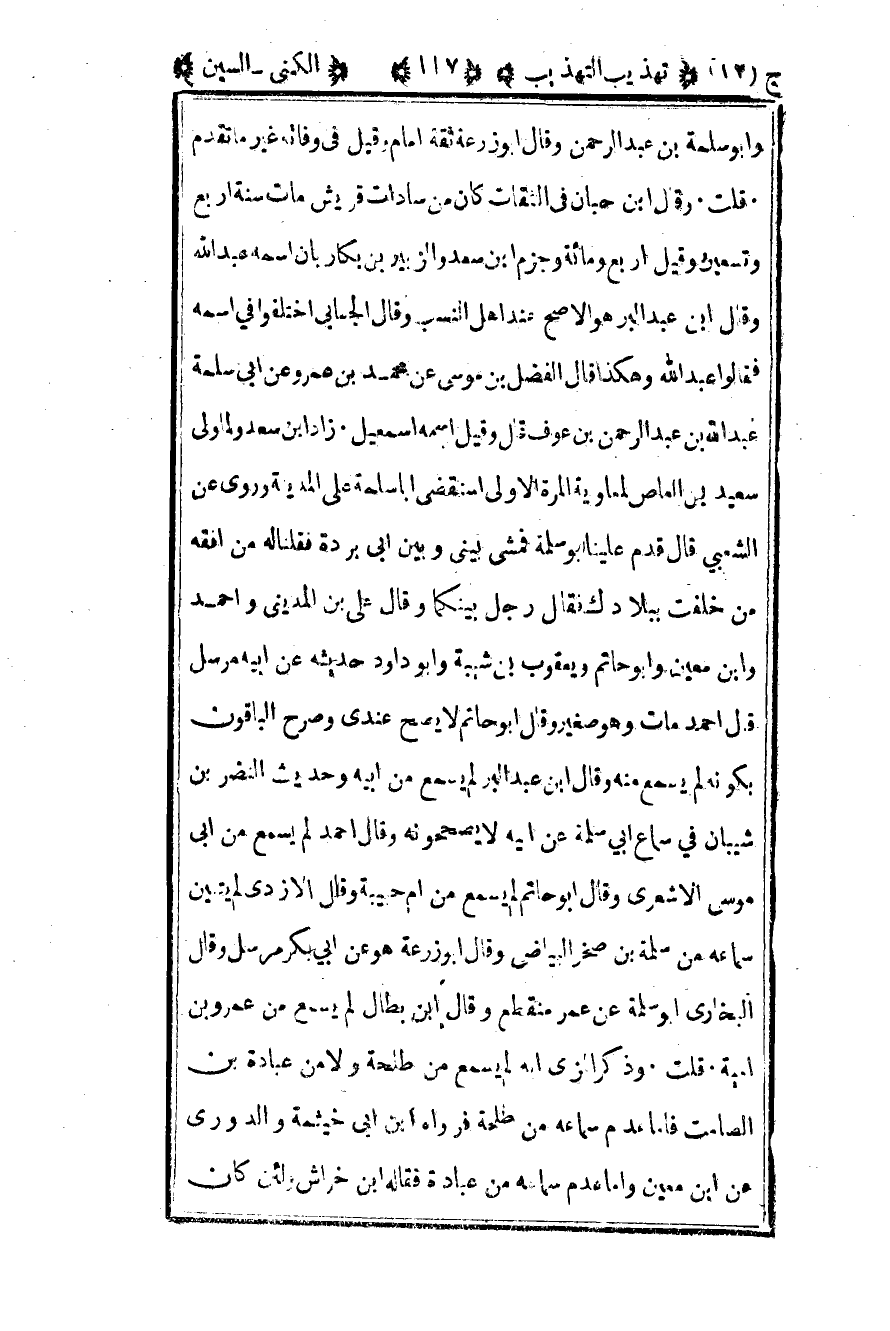 ج (١٢) تهذيب التهذيب ١١٧ الكنى - السين
وابو سلمة بن عبدالرحمن وقال ابوزرعة ثقة امام وقيل فى وفاته غير ما تقدم
٠ قلت ٠ وقال ابن حبان فى الثقات كان من سادات قريش مات سنة اربع
وتسعين وقيل اربع ومائة وجزم ابن سعد والزبير بن بكار بان اسمه عبدالله
وقال ابن عبدالبر هو الاصح عند اهل النسب وقال الجعابى اختلفوا في اسمه
فقالوا عبدالله وهكذا قال الفضل بن موسى عن محمد بن عمرو عن ابي سلمة
عبدالله بن عبدالرحمن بن عوف قال وقيل اسمه اسمعيل ٠ زاد ابن سعد ولما ولى
سعيد بن العاص لمعاوية المرة الاولى استقضى اباسلمة على المدينة وروى عن
الشعبي قال قدم علينا ابو سلمة فمشى بينى وبين ابى بردة فقلنا له من افقه
من خلفت ببلادك فقال رجل بينكما وقال على بن المدينى واحمد
وابن معين وابوحاتم ويعقوب بن شيبة وابو داود حديثه عن ابيه مرسل
قال احمد مات وهو صغير وقال ابوحاتم لا يصح عندى وصرح الباقون
بكونه لم يسمع منه وقال ابن عبدالبر لم يسمع من ابيه وحديث النضر بن
شيبان في سماع ابي سلمة عن ابيه لا يصححونه وقال احمد لم يسمع من ابى
موسى الاشعرى وقال ابوحاتم لم يسمع من ام حبيبة وقال الازدى لم يتبين
سماعه من سلمة بن صخر البياضى وقال ابوزرعة هو عن ابي بكر مرسل وقال
البخارى ابو سلمة عن عمر منقطع وقال ابن بطال لم يسمع من عمرو بن
امية ٠ قلت ٠ وذكر المزى انه لم يسمع من طلحة ولا من عبادة بن
الصامت فاما عدم سماعه من طلحة فرواه ابن ابى خيثمة والدورى
عن ابن معين واما عدم سماعه من عبادة فقاله ابن خراش ولئن كان